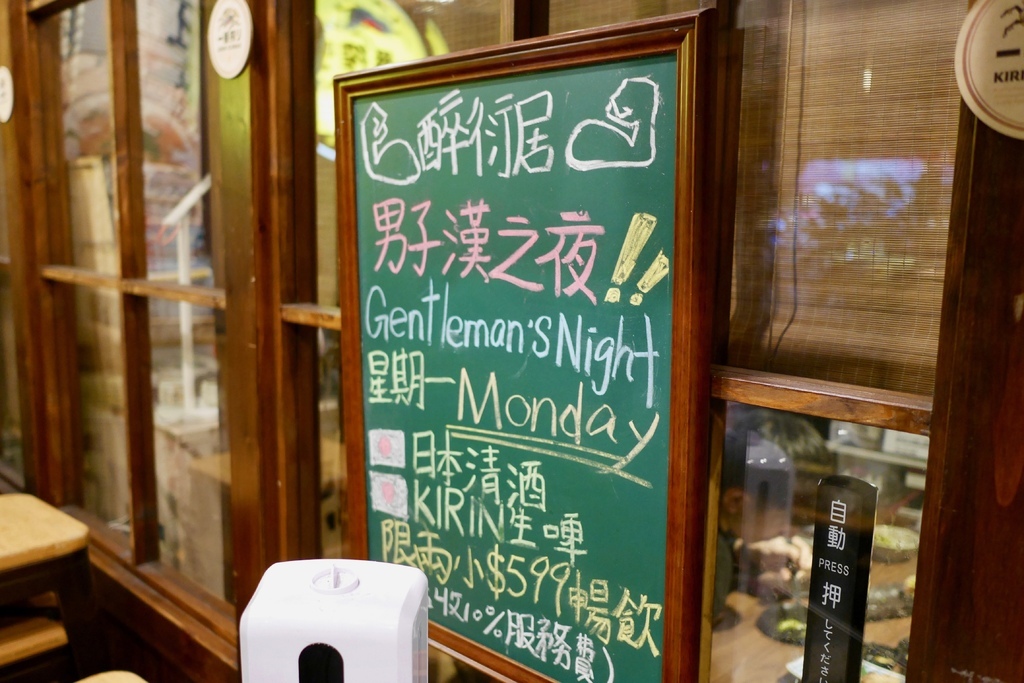 醉衍居
男子漢之夜!!
Gentleman's Night
星期一 Monday
日本清酒
KIRIN生啤
限兩小$599暢飲
收10%服務費)
自動
PRESS
押
してください
KIRI